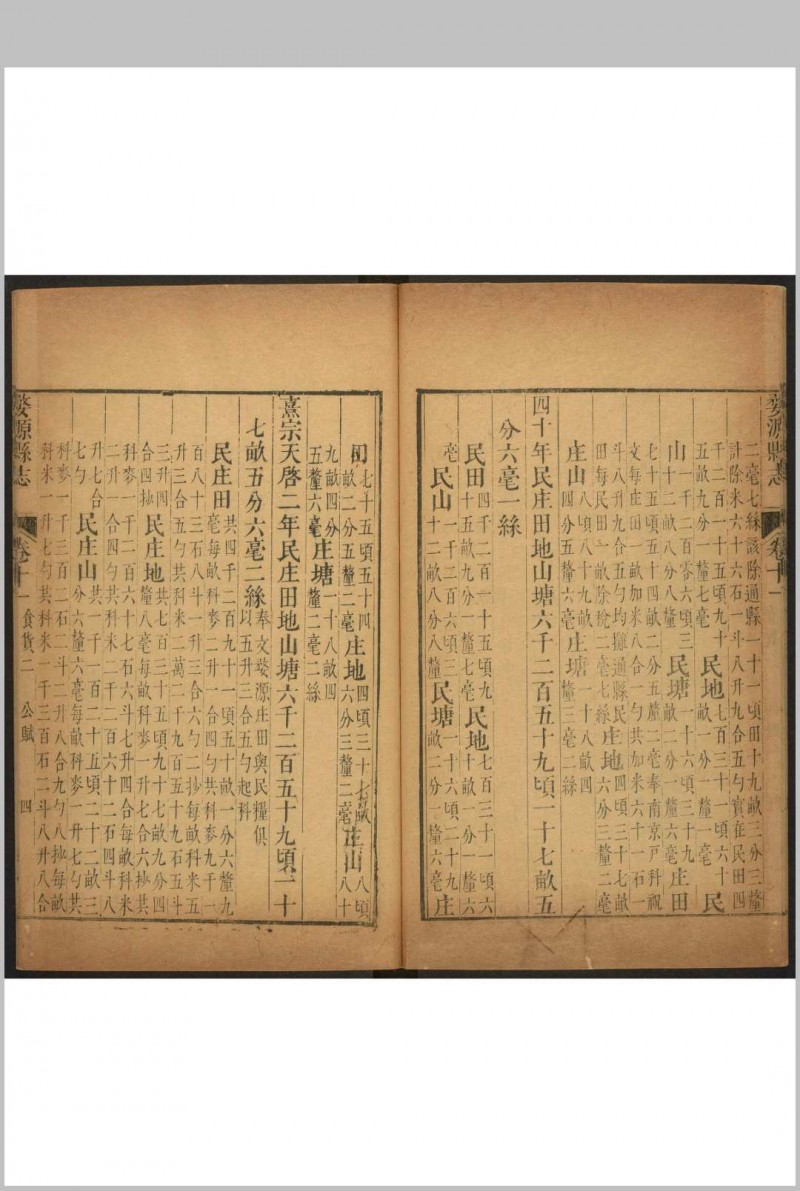 婺源縣志
卷十一
二毫七絲該除通縣一十一頃田十九畝三分三釐
計除米六十六石一斗八升九合五勺實在民田四
千二百一十五頃九十
五畝九分一釐七毫
民地七百三十一頃六十
畝一分一釐一毫
民
山一千二百零六頃三
十二畝八分八釐
民塘一十六頃三十九
畝二分一釐六毫
庄田
七十五頃五十四畝二分五釐二毫奉南京戸科
文每庄田一畝加米八合一勺共加米六十一石一
斗八升九合五勺均攤通縣民
田每民田一畝除稅二毫七絲
庄地四頃三十七畝
六分三釐二毫
庄山八頃八十九畝
四分五釐六毫
庄塘一十八畝四
釐三毫二絲
四十年民庄田地山塘六千二百五十九頃一十七畝五
分六毫一絲
民田四千二百一十五頃九
十五畝九分一釐七毫
民地七百三十一頃六
十畝一分一釐六
毫
民山一千二百六頃三
十二畝八分八釐
民塘一十六頃二十九
畝二分一釐六毫
庄
田七十五頃五十四
畝二分五釐二毫
庄地四頃三十七畝
六分三釐二毫
庄山八頃
八十
九畝四分
五釐六毫
庄塘一十八畝四
釐二毫二絲
熹宗天啓二年民庄田地山塘六千二百五十九頃二十
七畝五分六毫二絲
奉文婺源庄田與民糧俱
以五升三合五勺起科
民庄田
共四千二百九十一頃五十畝一分六釐九
毫每畝科麥二升一合四勺共科麥九千一
百八十三石八斗一升三合六勺二抄每畝科米五
升三合五勺共科米二萬二千九百五十九石五斗
三升四
合四抄
民庄地
共七百三十五頃九十七畝九分四
釐八毫每畝科麥一升七合六抄共
科麥一千二百六十七石六斗七升四合每畝科米
二升一合四勺共科米二千二百六十二石四斗八
升七合
七勺
民庄山
共一千一百二十五頃二十二畝三
分六釐六毫每畝科麥一升七勺共
科麥一千三百二石二斗二升八合九勺八抄每畝
科米一升七勺共科米一千三百石二斗八升八合
婺源縣志
卷十一
食貨二
公賦
四